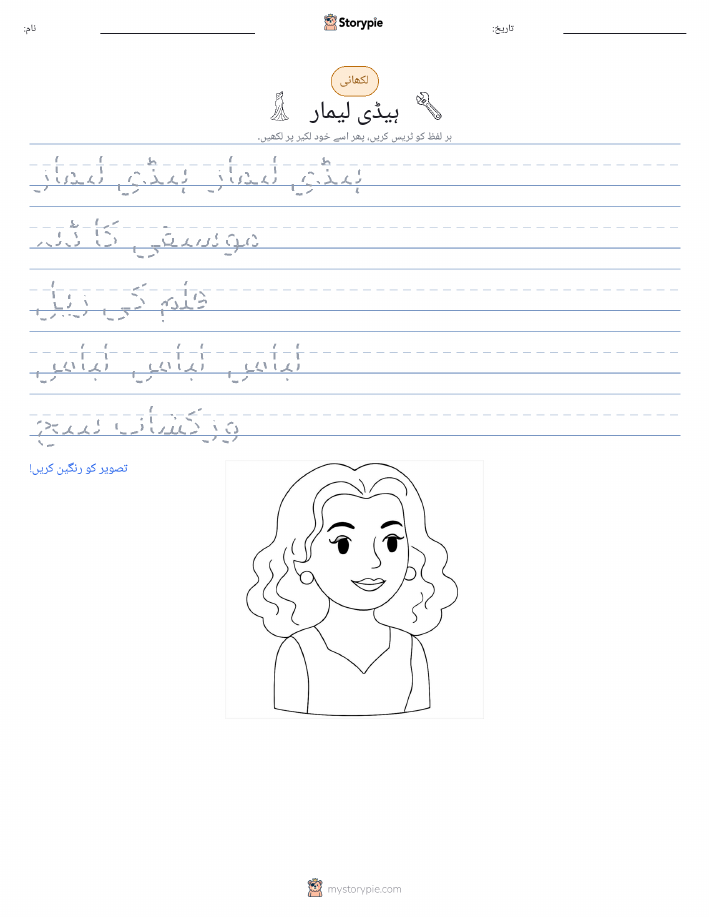 نام:
Storypie
تاریخ:
لکھائی
ہیڈی لیمار
ہر لفظ کو ٹریس کریں، پھر اسے خود لکیر پر لکھیں۔
ہیڈی لیمار ہیڈی لیمار
موسیقی کا ڈبہ
فلم کی ریل
لباس لباس لباس
ورکشاپ بینچ
تصویر کو رنگین کریں!
mystorypie.com